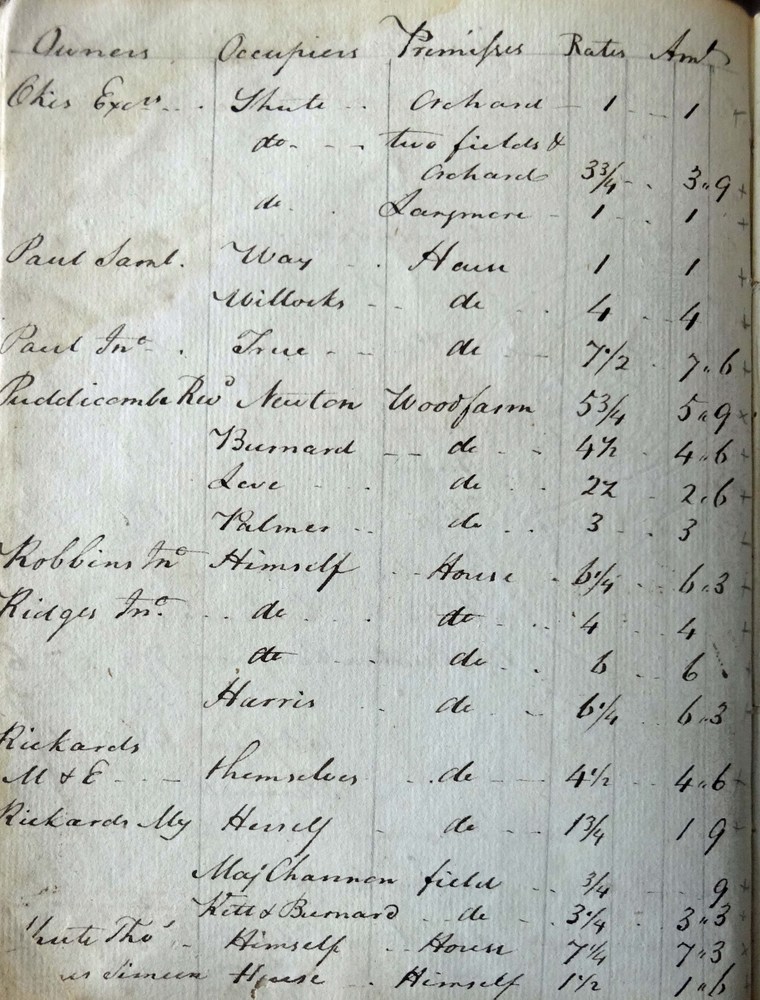 Owners Occupiers Premisses Rates Amt
Okes Exers Shute Orchard 1 1
do two fields &
Orchard 3 3/4 3"9
do Langmore 1 1
Paul Saml. Way House 1 1
Willocks do 4 4
Paul Jno. True do 7 1/2 7"6
Puddicombe Revd Newton Woodfarm 5 3/4 5"9
Burnard do 4 1/2 4"6
Leve do 2 1/2 2"6
Palmer do 3 3
Robbins Jno Himself House 6 1/4 6"3
Ridges Jno. do do 4 4
do do 6 6
Harris do 6 1/4 6"3
Rickards
M & E themselves do 4 1/2 4"6
Rickards My Herself do 1 3/4 1 9
Maj Channon field 3/4 9
Kett & Burnard do 3 1/4 3"3
Shute Thos Himself House 7 1/4 7"3
Simeon House Himself 1 1/2 1"6